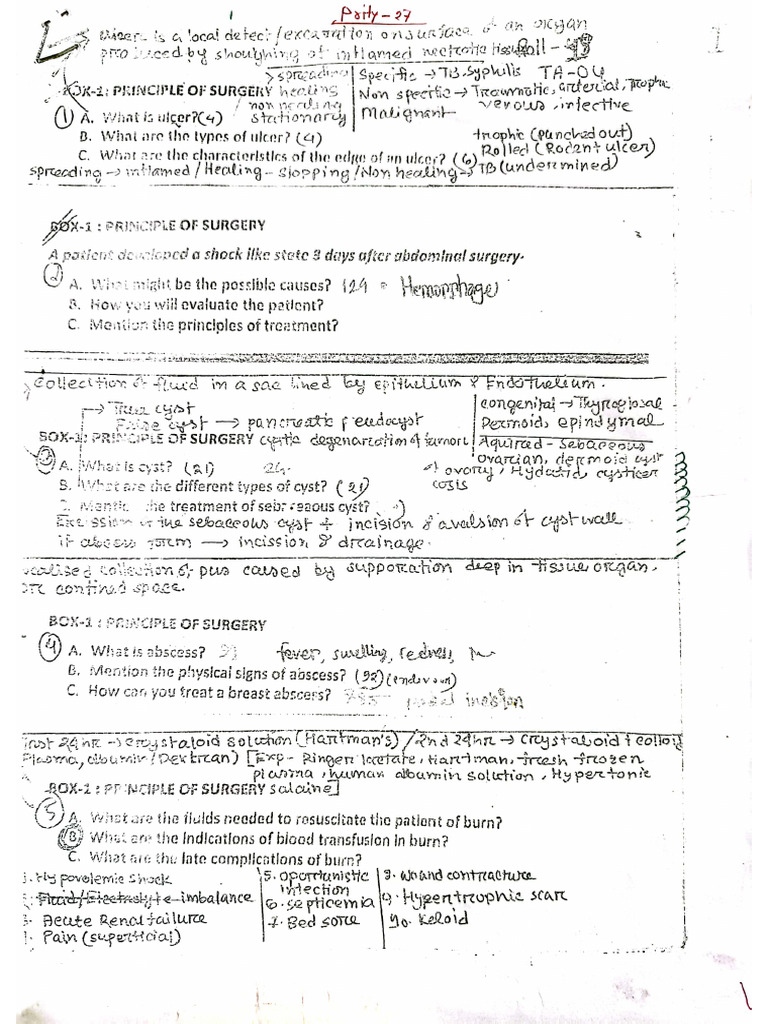 Prity-27
Ulcer is a local defect/excavation on surface of an organ
produced by shoughing of inflamed necrotic tissue Roll - 98
1
TA-04
spreading
BOX-1: PRINCIPLE OF SURGERY healing
non healing
stationary
Specific → TB, Syphilis
Non specific → Traumatic, arterial, Trophic
venous, infective
Malignant
1 A. What is ulcer? (4)
B. What are the types of ulcer? (4)
C. What are the characteristics of the edge of an ulcer? (6)
trophic (Punched out)
Rolled (Rodent ulcer)
spreading → inflamed/Healing - slopping/Non healing → TB (undermined)
BOX-1 : PRINCIPLE OF SURGERY
A patient developed a shock like state 3 days after abdominal surgery.
2 A. What might be the possible causes? 129 Hemorrhage
B. How you will evaluate the patient?
C. Mention the principles of treatment?
Collection of fluid in a sac lined by epithelium & Endothelium.
→ True cyst
False cyst → pancreatic pseudocyst
BOX-1: PRINCIPLE OF SURGERY cystic degenaration of tumor
congenital → Thyroglosal
Dermoid, epindymal
Aquired - sebaceous
ovarian, dermoid cyst
of ovary, Hydatid, cysticer
cosis
3 A. What is cyst? (21) 24
B. What are the different types of cyst? (21)
C. Mention the treatment of sebaceous cyst?
Excession of the sebaceous cyst + incision & avalsion of cyst wall
if abcess form → incission & drainage.
localised collection of pus caused by supporation deep in tissue organ.
or confined space.
BOX-1 : PRINCIPLE OF SURGERY
4 A. What is abscess? 91 fever, swelling, redness,
B. Mention the physical signs of abscess? (92)
C. How can you treat a breast abscers? incision
First 24hr → Crystaloid solution (Hartman's) / 2nd 24hr → Crystaloid + colloid
Plasma, albumin/Dextran) [Exp- Ringer lactate, Hartman, fresh frozen
plasma, human albumin solution, Hypertonic
BOX-1 : PRINCIPLE OF SURGERY salaine]
5 A. What are the fluids needed to resuscitate the patient of burn?
B. What are the indications of blood transfusion in burn?
C. What are the late complications of burn?
1. Hypovolemic shock
2. Fluid/Electrolyte imbalance
3. Acute Renal failure
4. Pain (superficial)
5. oportunistic
infection
6. septicemia
7. Bed sore
8. Wound contracture
9. Hypertrophic scar
10. Keloid